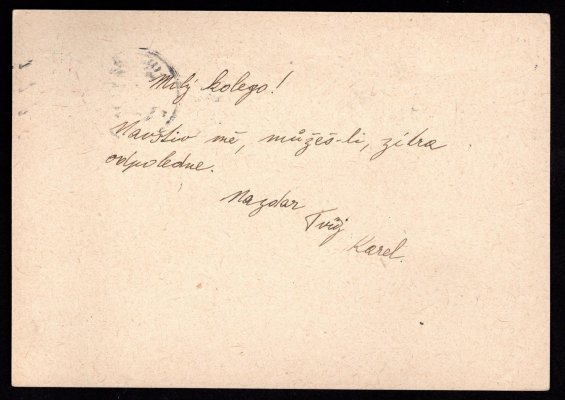 Milý kolego!
Navštiv mě, můžeš-li, zítra
odpoledne.
Nazdar
Tvůj
Karel.